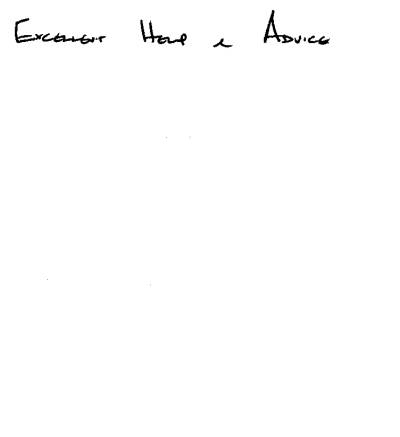 Excellent Help & Advice